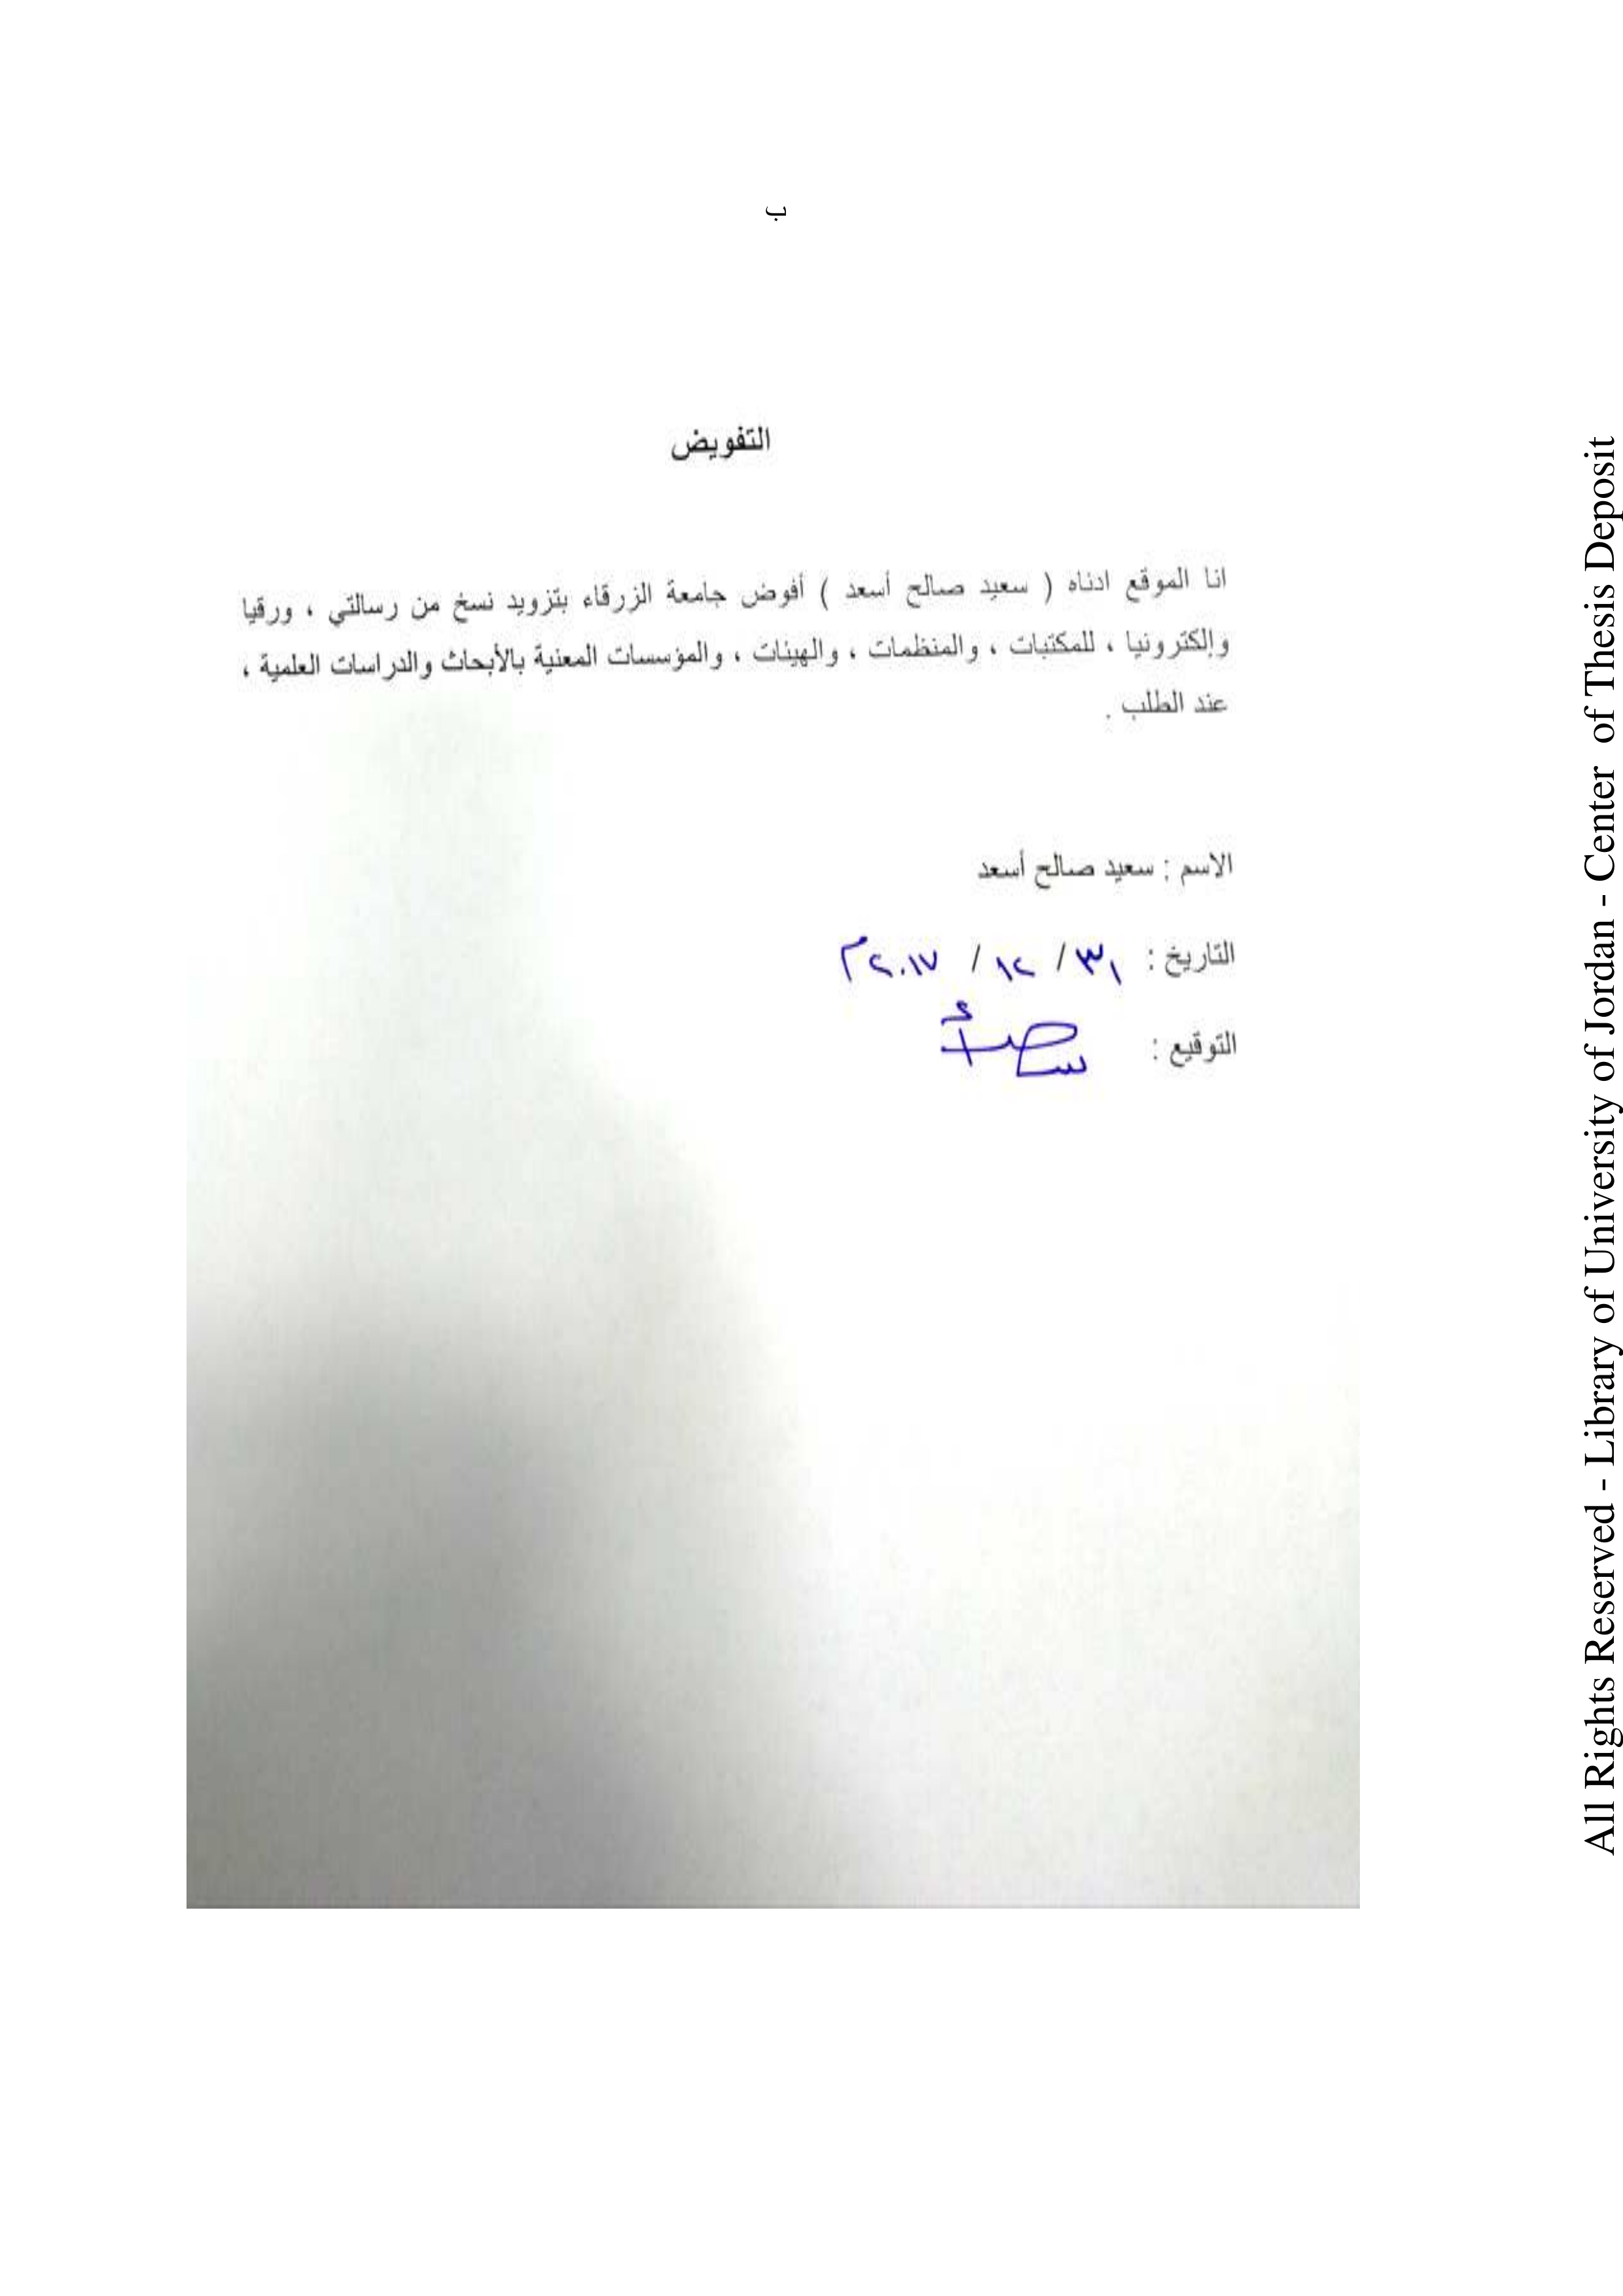 ب
التفويض
انا الموقع ادناه ( سعيد صالح أسعد ) أفوض جامعة الزرقاء بتزويد نسخ من رسالتي ، ورقيا
وإلكترونيا ، للمكتبات ، والمنظمات ، والهيئات ، والمؤسسات المعنية بالأبحاث والدراسات العلمية ،
عند الطلب .
الاسم : سعيد صالح أسعد
التاريخ : ٣١ / ١٢ / ٢٠١٧م
التوقيع :
All Rights Reserved - Library of University of Jordan - Center of Thesis Deposit